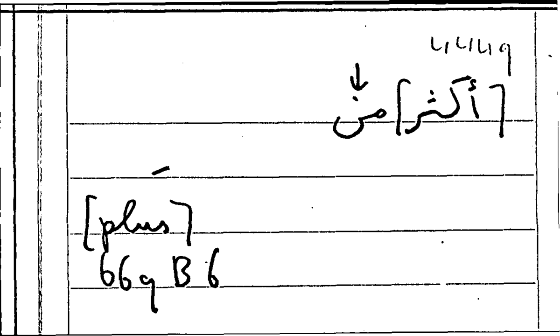 [أكثر] من
[plus]
669 B 6